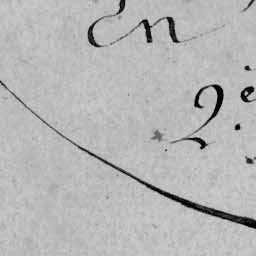 En
2.e